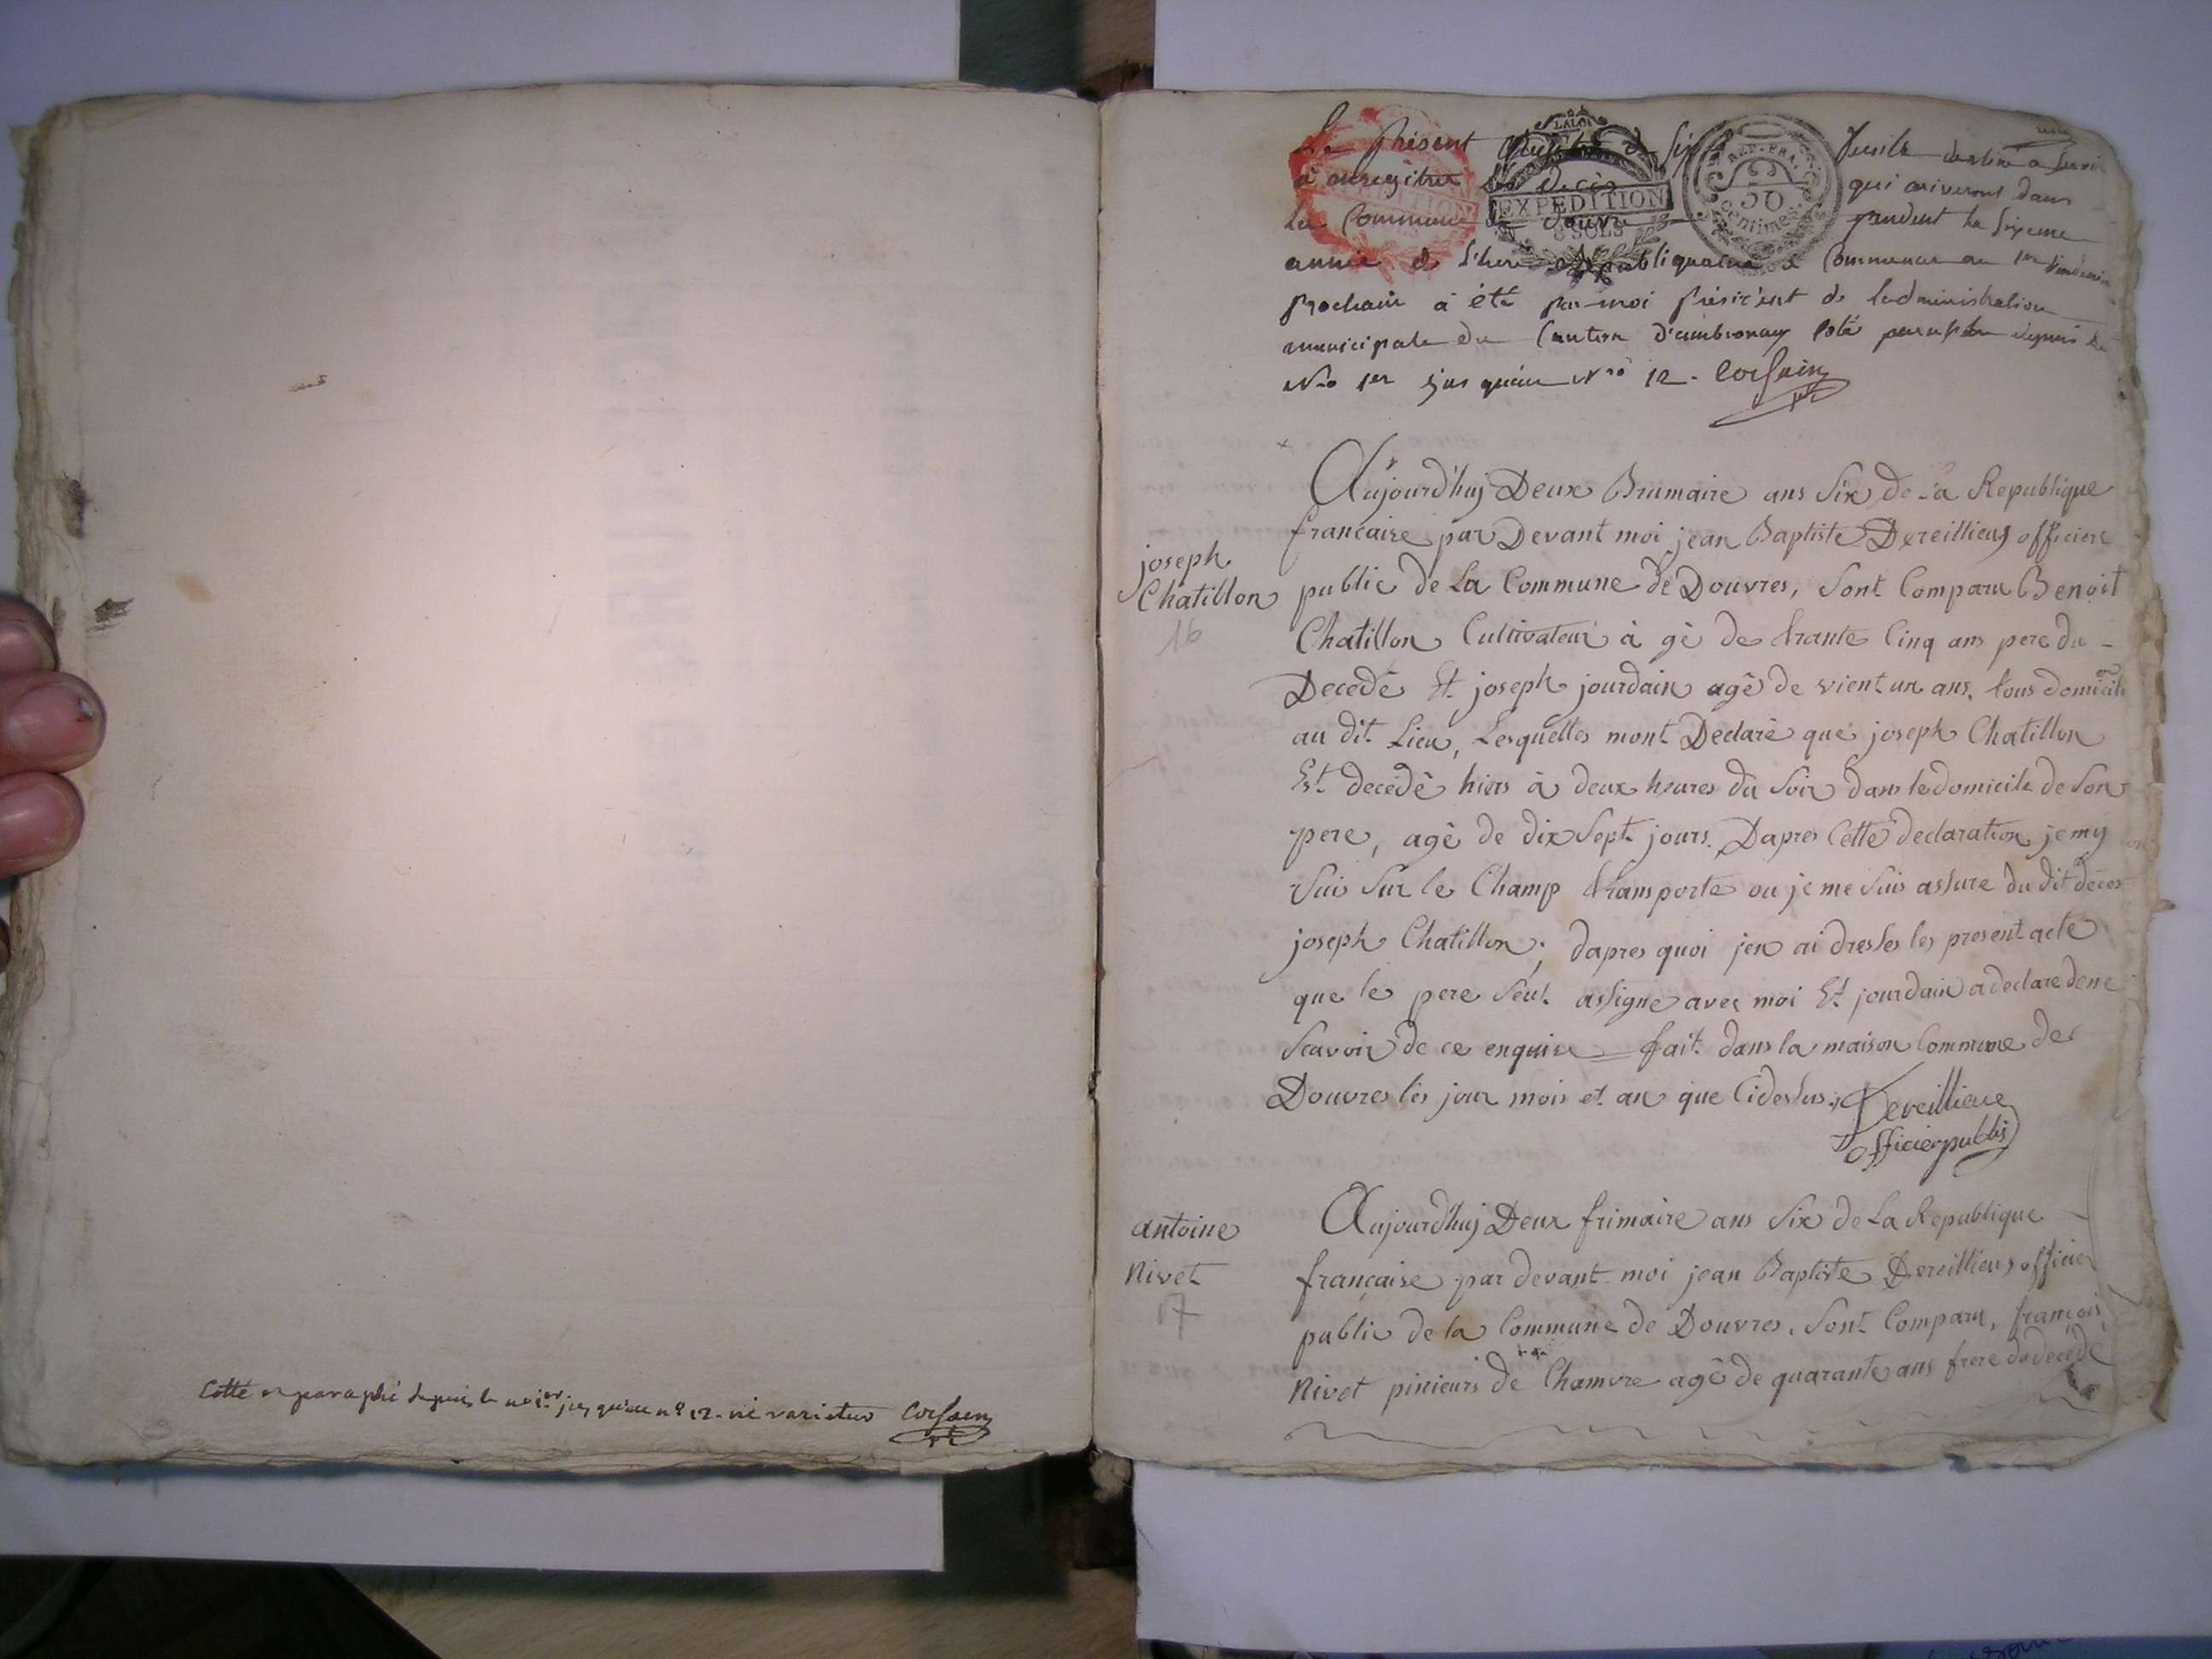 Cotté et paraphé depuis le no 1er jusqu'au n° 12. ne varietur Corsain
Le présent Registre de six feuils destiné a servir
a enregitrer les décès qui ariveront dans
La Commune de Douvre pendent la sixeme
année de l'here Republiquaine à Commencer au 1er vendemi
prochain à été par moi président de ladministration
municipale du Canton d'ambronay coté paraphée depuis le
Nro 1er jus qu'au Nro 12. Corsain
EXPEDITION
LA LOI
8 SOLS
REP. FRA.
50
centimes
joseph
Chatillon
16
Aujourd'huj Deux Brumaire ans Six de La Republique
francaise par Devant moi jean Baptiste Dereillieux officier
public de La Commune de Douvres, Sont Comparu Benoit
Chatillon Cultivateur à gè de trante Cinq ans pere du
Decedé Et joseph jourdain agè de vient un ans. tous domicile
au dit Lieu, Lesquelles mont Declarè que joseph Chatillon
Est decedè hiers à deux heures du Soir dans le domicile de Son
pere, agè de dix Sept jours. Dapres Cette declaration, je my
Suis Sur le Champ transporte ou je me Suis assure du dit deces
joseph Chatillon; dapres quoi jen ai dresses les present acte
que le pere Seul assigne avec moi Et jourdain a declare de ne
Scavoir de ce enquire fait dans la maison Commune de
Douvres les jour mois et an que Cidessus. Dereillieux
officier public
antoine
Nivet
17
Aujourd'huj Deux frimaire ans Six de La Republique
francaise par devant moi jean Baptiste Dereillieux officier
public de la Commune de Douvres, Sont Comparu, francois
Nivet pinieurs de Chamvre agè de quarante ans frere du decedé